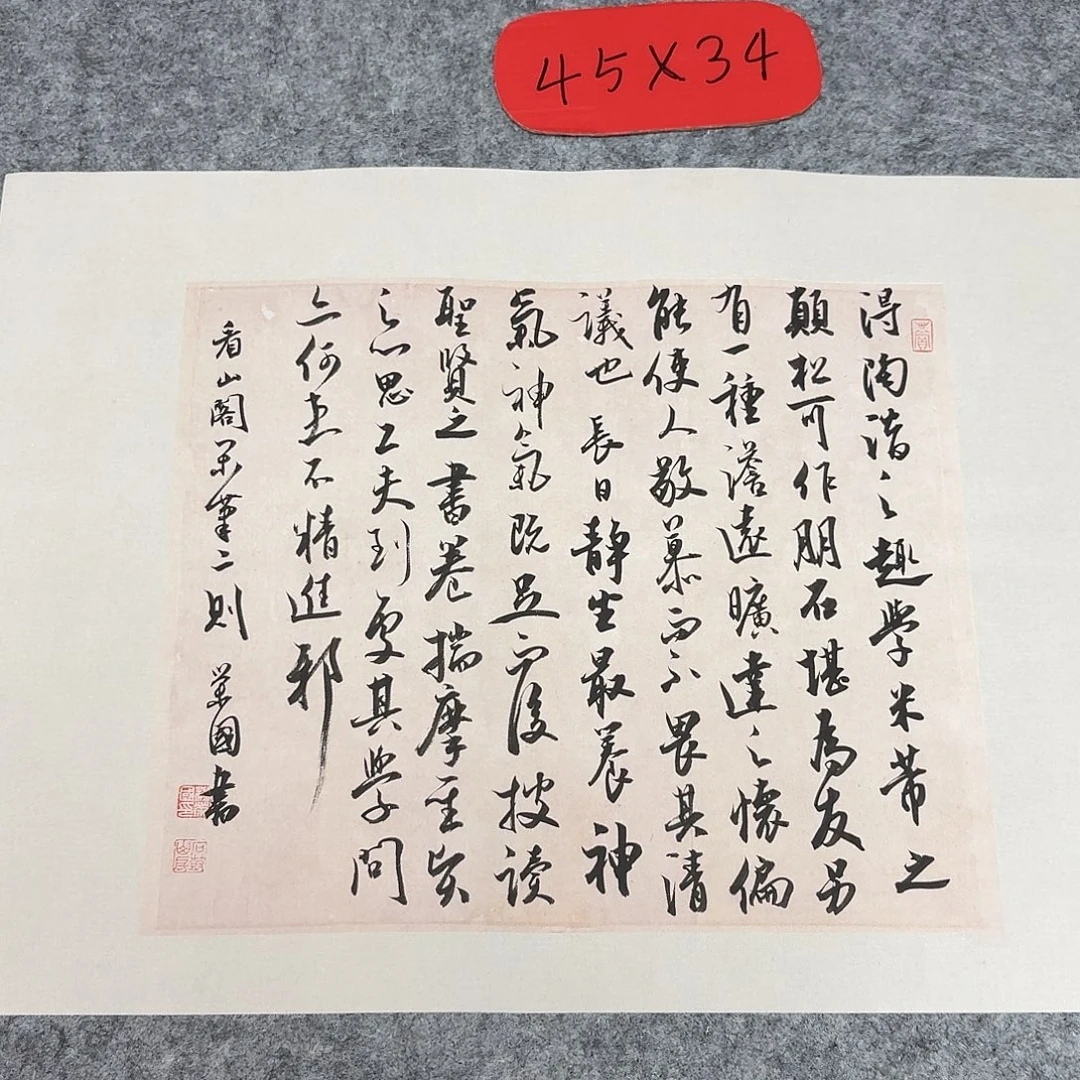 45X34
得陶潛之趣學米芾之
顛松可作朋石堪為友另
有一種澹遠曠達之懷偏
能使人敬慕而不畏其清
議也長日靜坐最養神
氣神氣既足而後披讀
聖賢之書卷揣摩聖賢
之心思工夫到處其學問
亦何患不精進邪
看山閣閒筆二則 榮國書